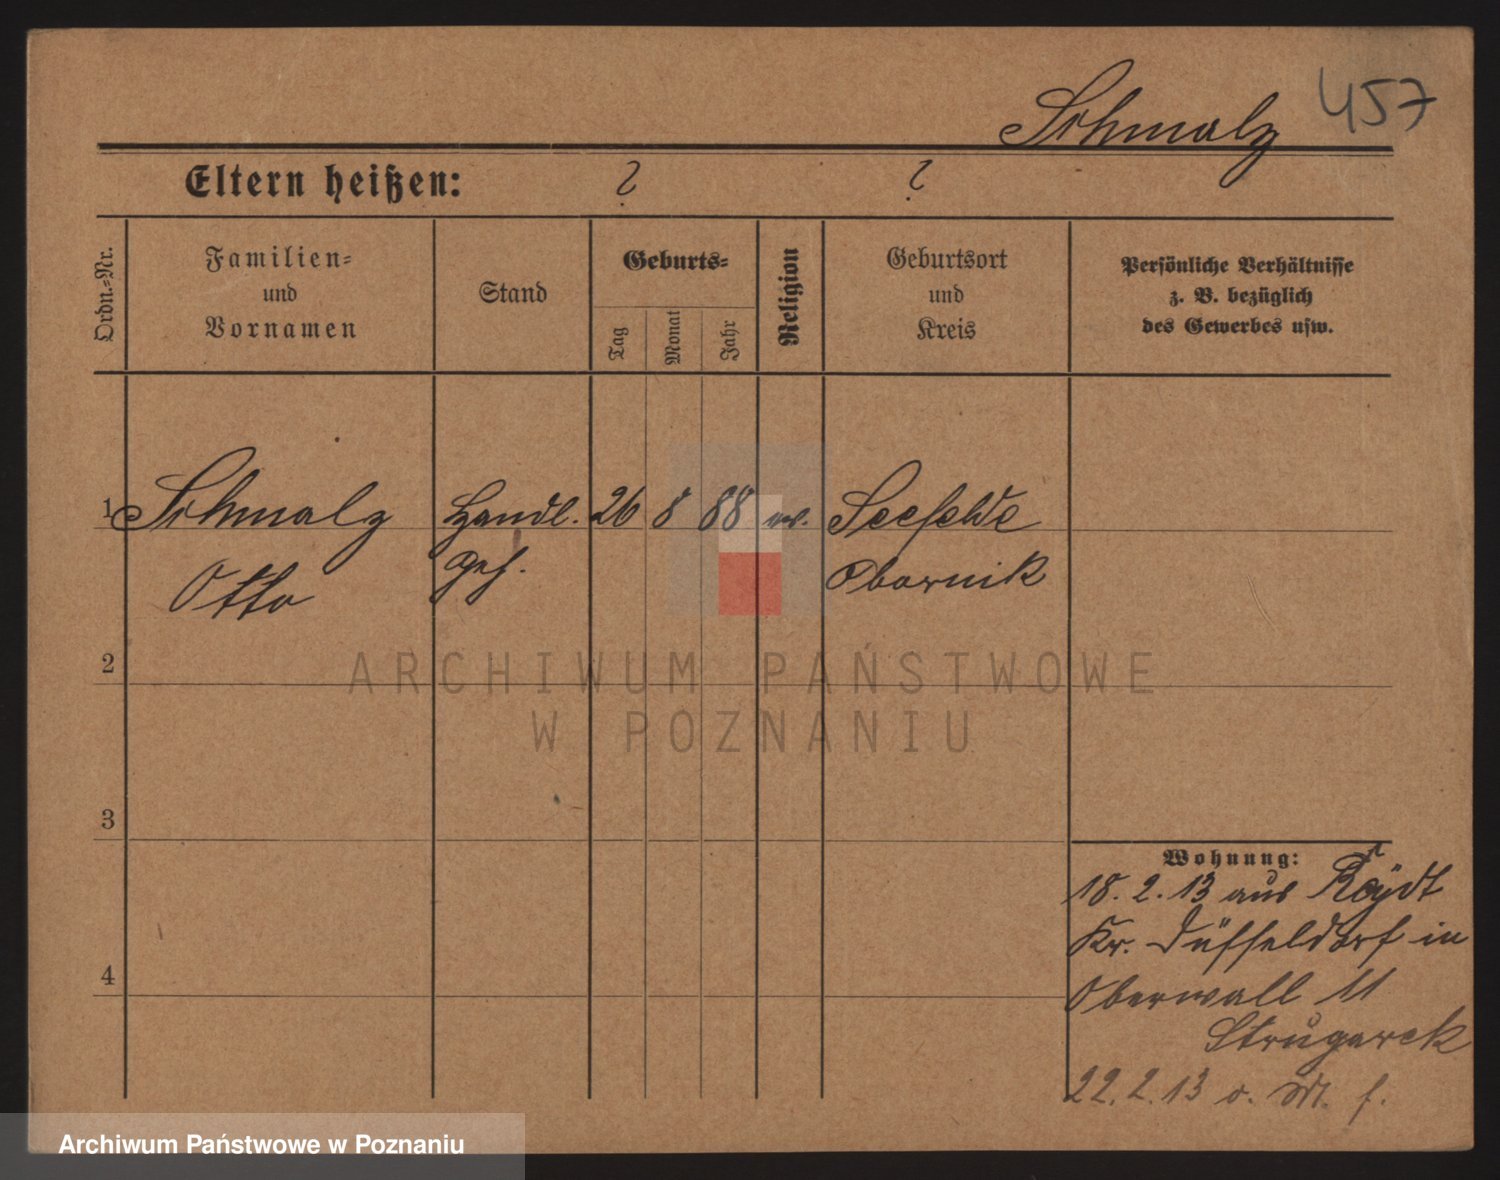 Schmalz 457
Eltern heißen: ? ?
Ordn.-Nr.
Familien- und Vornamen
Stand
Geburts-
Tag
Monat
Jahr
Religion
Geburtsort und Kreis
Persönliche Verhältnisse
z. B. bezüglich
des Gewerbes usw.
1 Schmalz Handl. 26 8 88 ev. Seefelde
Otto Geh. Obornik
2
3
4
Wohnung:
18. 2. 13 aus
Kr. Düsseldorf in
Oberwall 11
Strugarek
22. 2. 13 o. M. f.
ARCHIWUM PAŃSTWOWE
W POZNANIU
Archiwum Państwowe w Poznaniu